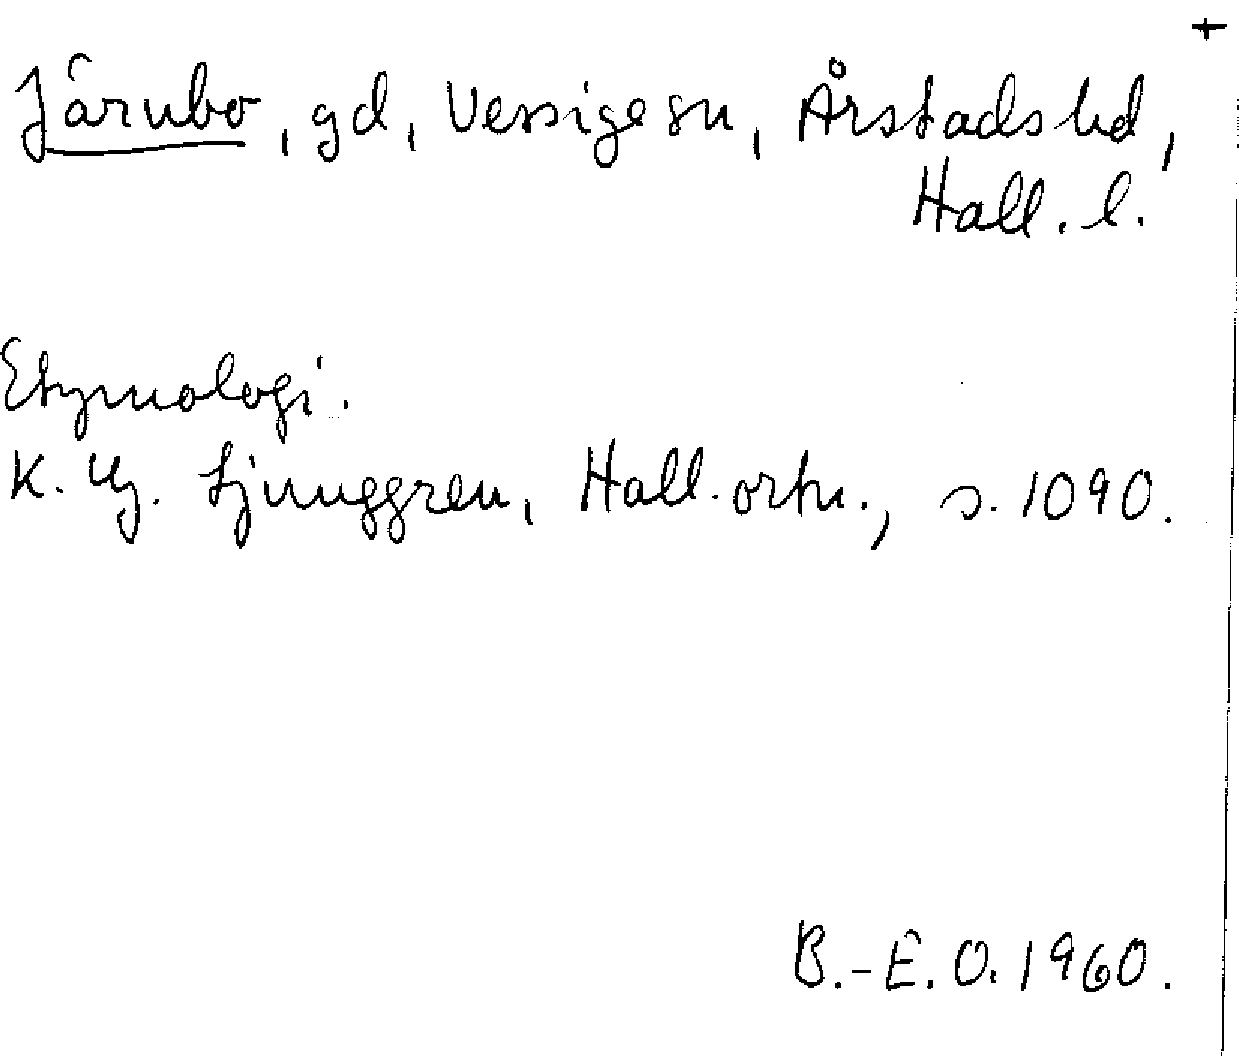 +
Järnbo, gd, Vessige sn, Årstads hd,
Hall. l.
Etymologi.
K. Hj. Ljunggren, Hall. ortn., s. 1090.
B.-E. O. 1960.